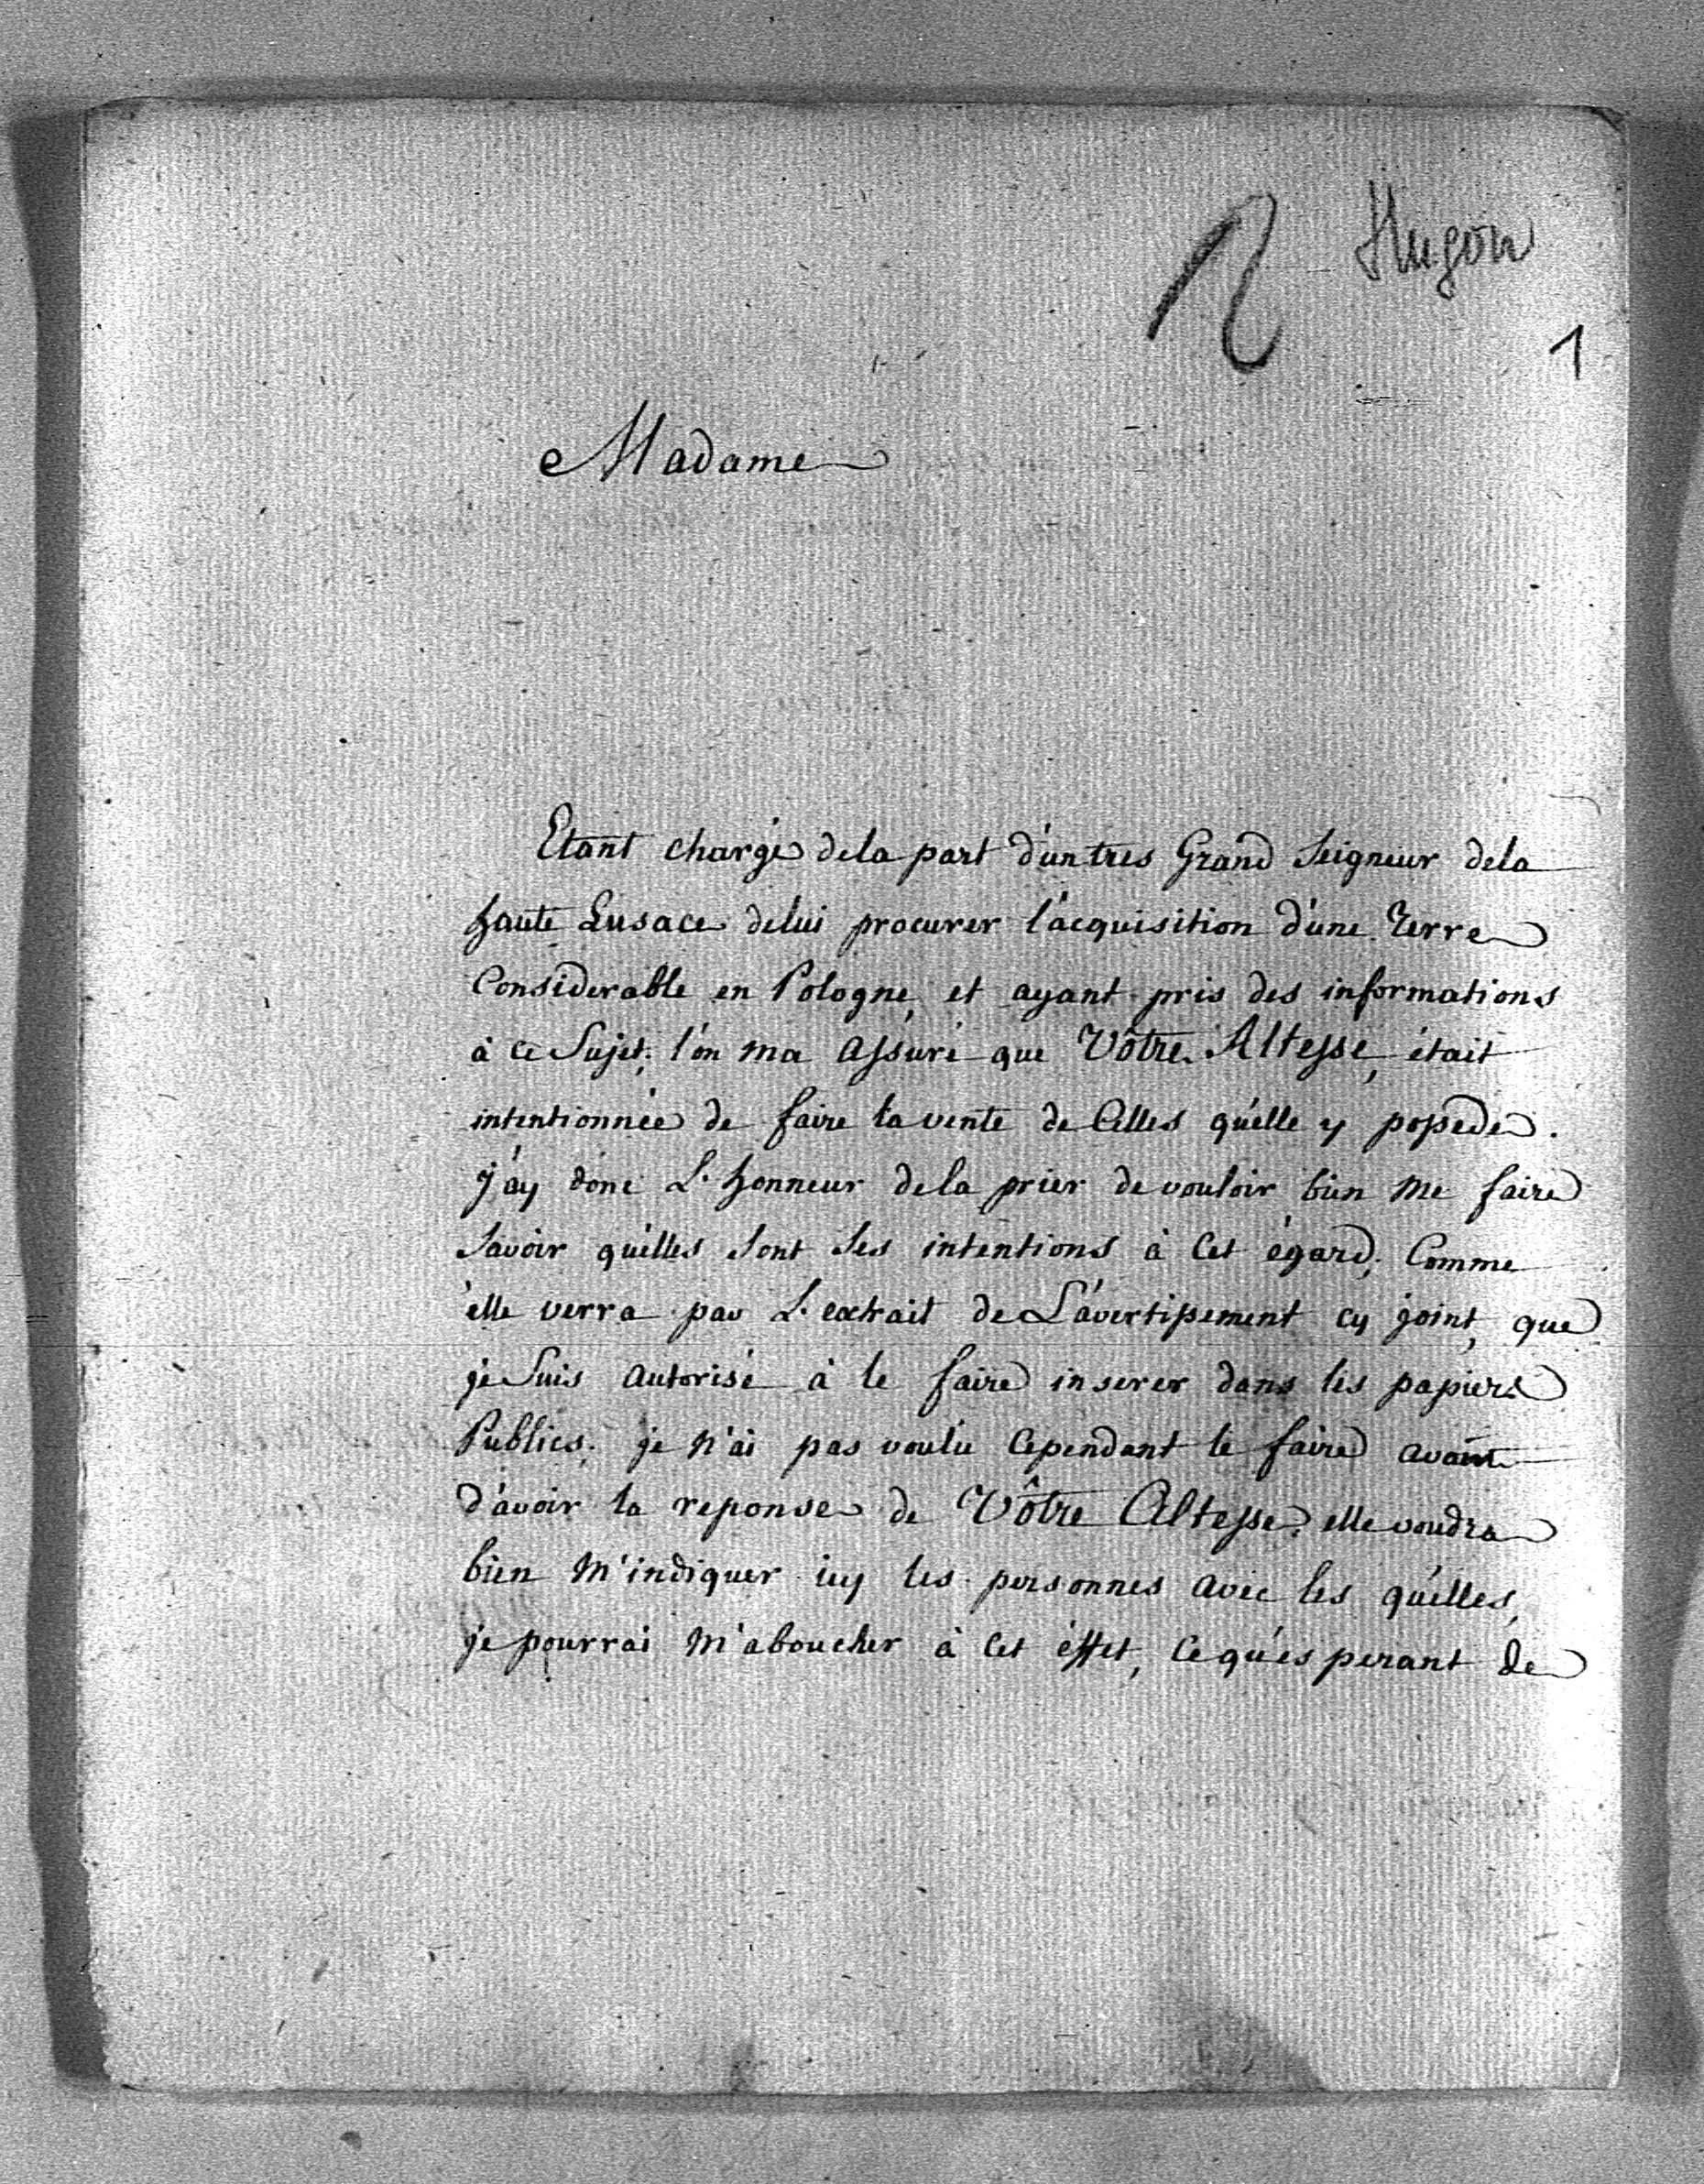 Hugon
1
Madame
Etant chargé dela part d'un tres Grand Seigneur dela
haute Lusace delui procurer l'acquisition d'une Terre
Considerable en Pologne, et ayant pris des informations
à ce Sujet; l'on ma assuré que Vôtre Altesse, était
intentionnée de faire la vente de Celles qu'elle y possede.
j'ay donc L'honneur dela prier de vouloir bien me faire
Savoir qu'elles sont ses intentions à Cet égard; Comme
elle verra par L'extrait de L'avertissement cy joint, que
je Suis autorisé à le faire inserer dans les papiers
Publics; je n'ai pas voulu Cependant le faire avant
d'avoir la reponse de Vôtre Altesse; elle voudra
bien m'indiquer icy les personnes avec les qu'elles,
je pourrai m'aboucher à Cet éffet, Ce qu'esperant de